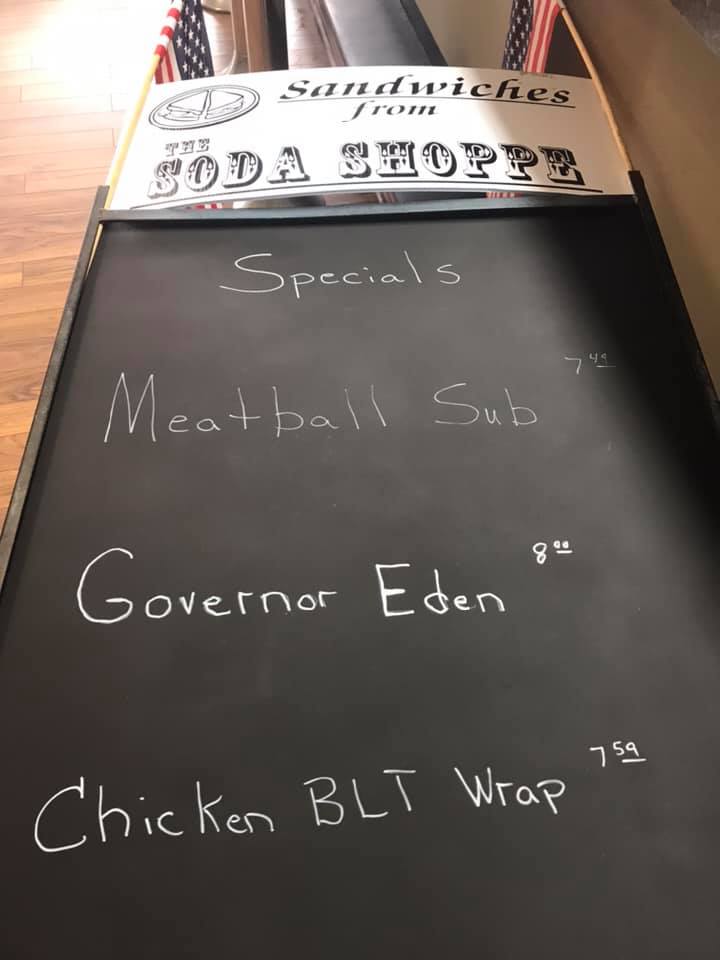 Sandwiches
from
THE
SODA SHOPPE
Specials
Meatball Sub 7 49
Governor Eden 8 99
Chicken BLT Wrap 7 59